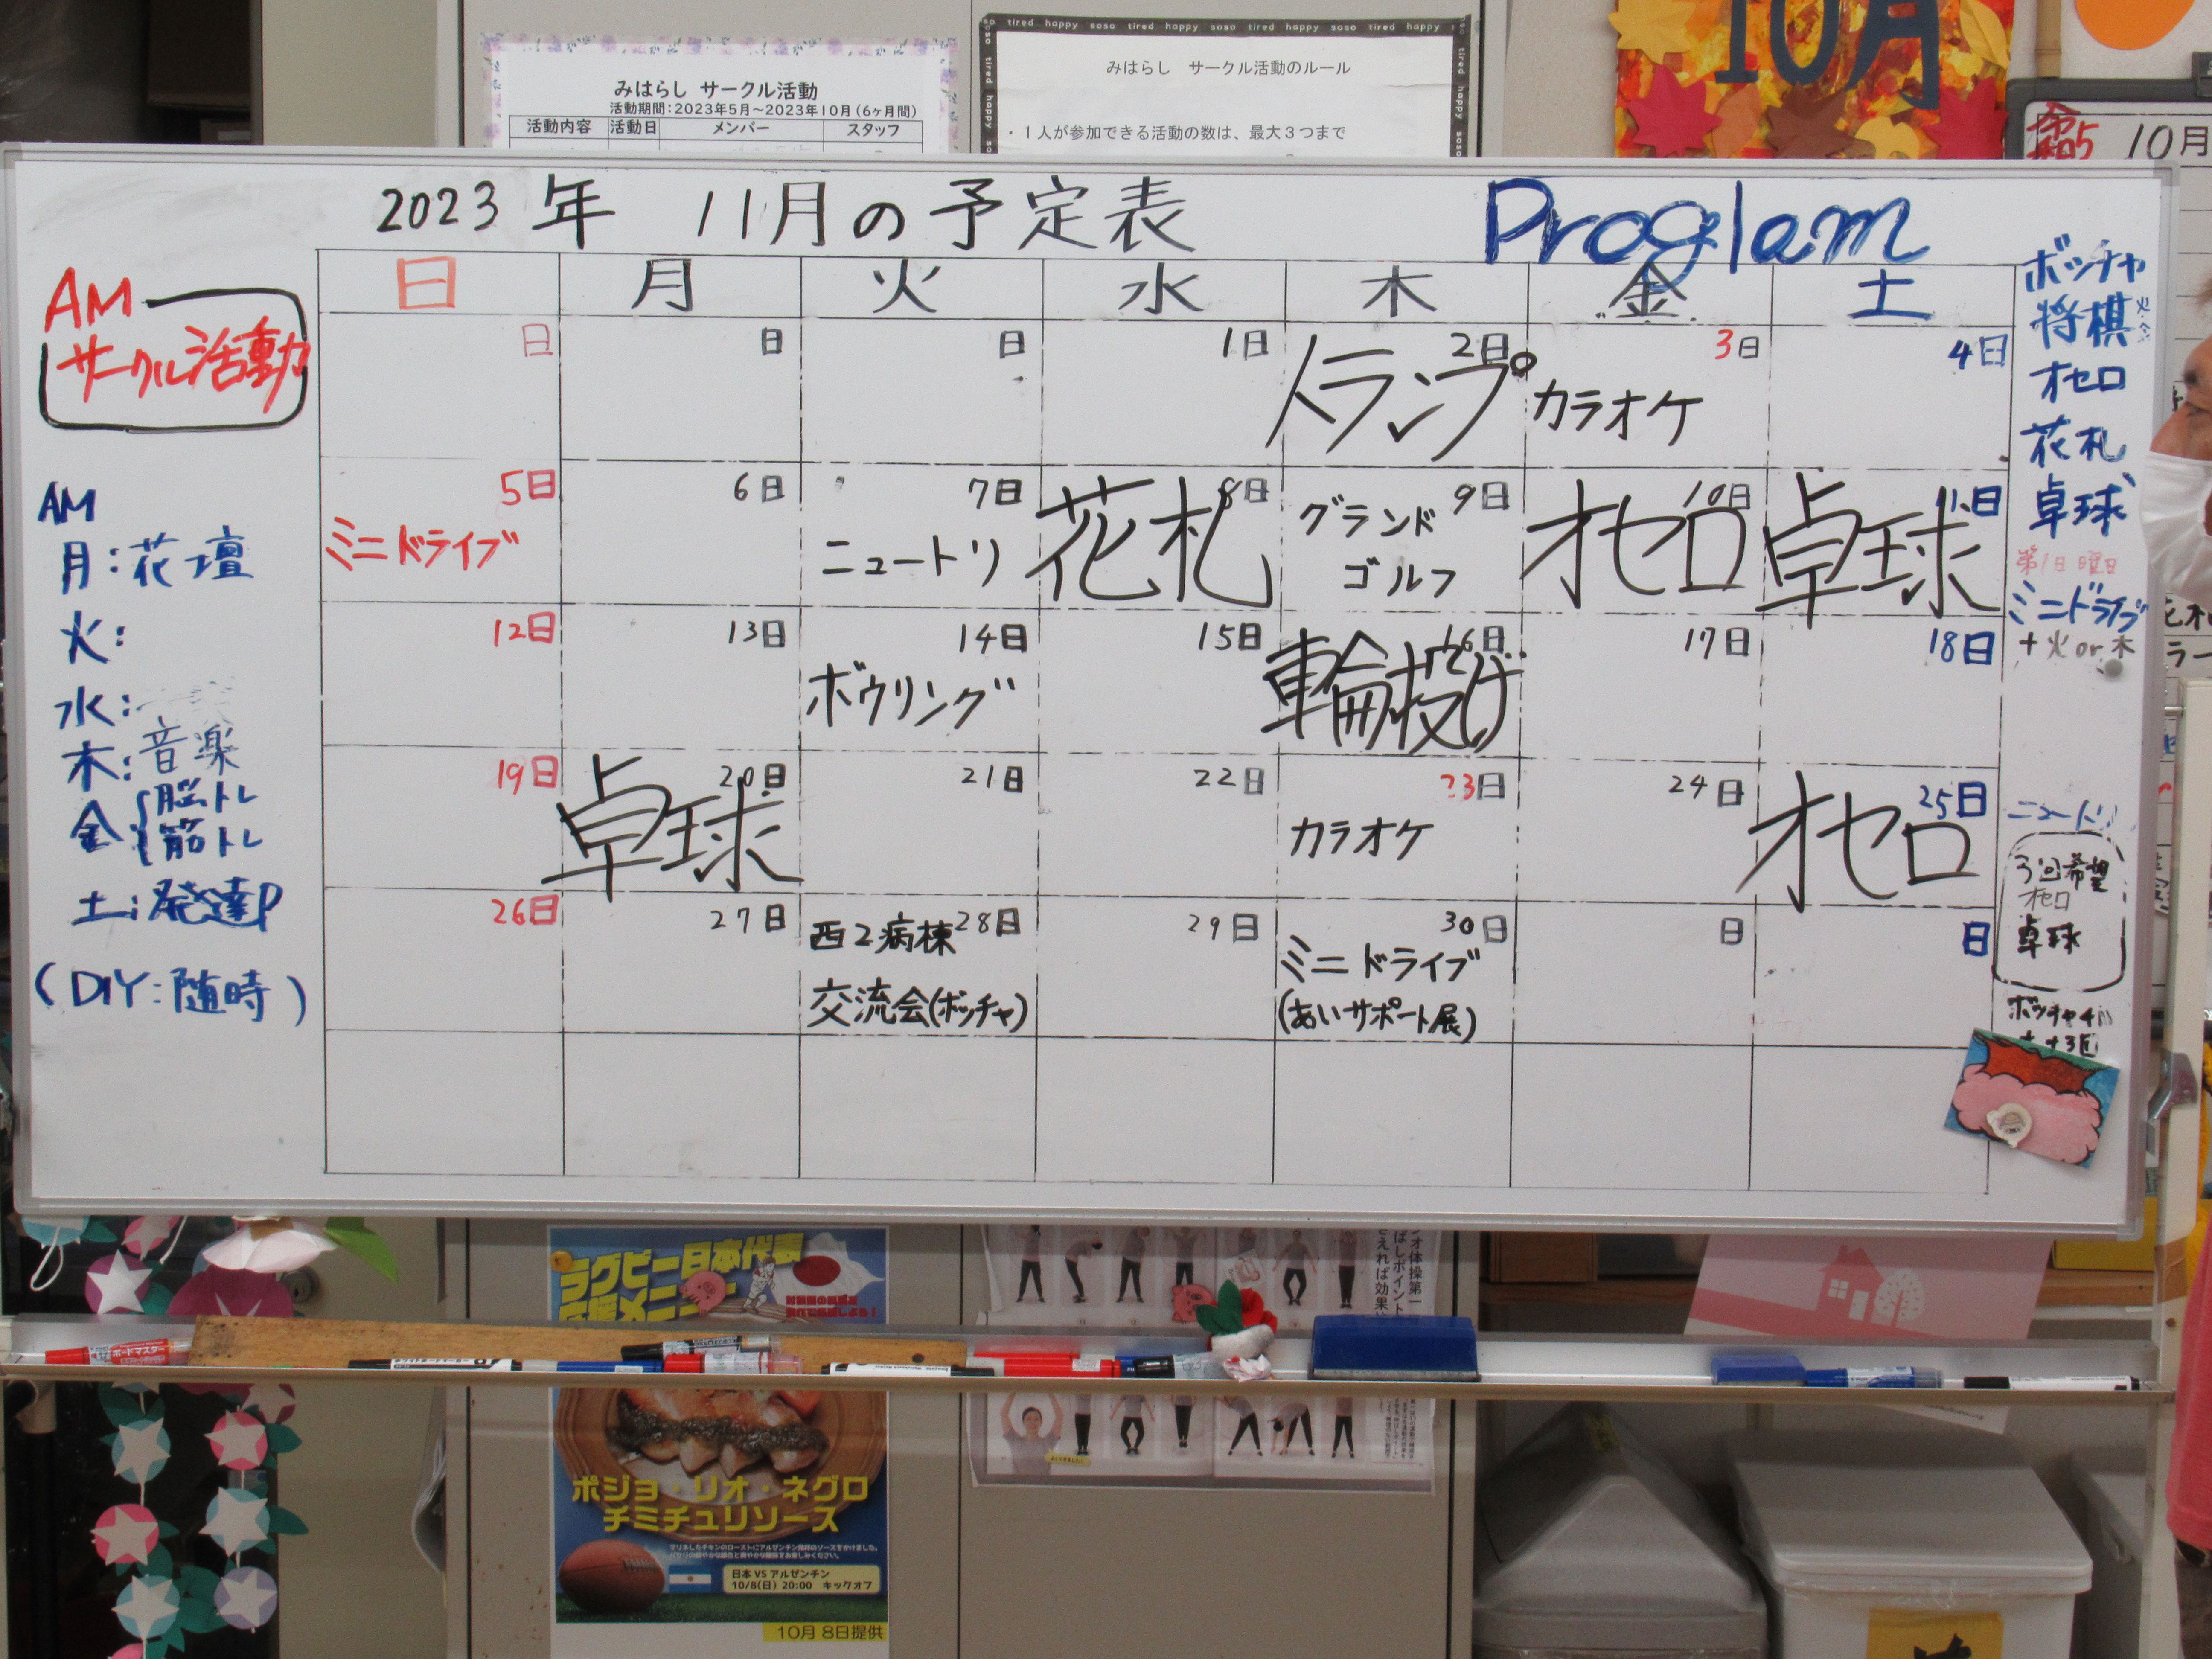 soso tired happy soso tired happy soso tired happy soso tired happy
みはらし サークル活動
活動期間：2023年5月～2023年10月（6ヶ月間）
活動内容 活動日 メンバー スタッフ
みはらし サークル活動のルール
・1人が参加できる活動の数は、最大3つまで
10月
令和5
10月
2023年 11月の予定表
Proglam
日 月 火 水 木 金 土
日 日 日 1日 2日 3日 4日
トランプ カラオケ
5日 6日 7日 8日 9日 10日 11日
ミニドライブ ニュートリ 花札 グランド オセロ 卓球
ゴルフ
12日 13日 14日 15日 16日 17日 18日
ボウリング 輪投げ
19日 20日 21日 22日 23日 24日 25日
卓球 カラオケ オセロ
26日 27日 28日 29日 30日 日 日
西2病棟 ミニドライブ
交流会(ボッチャ) (あいサポート展)
AM
サークル活動
AM
月:花壇
火:
水:
木:音楽
金{脳トレ
{筋トレ
土:発達P
(DIY:随時)
ボッチャ
将棋 火・金
オセロ
花札
卓球
第1日曜日
ミニドライブ
+火or木
ニュートリ
3回希望
オセロ
卓球
ボッチャ
3回
ラグビー日本代表
応援メニュー
ボードマスター
ポジョ・リオ・ネグロ
チミチュリソース
日本 VS アルゼンチン
10/8(日) 20:00 キックオフ
10月 8日提供